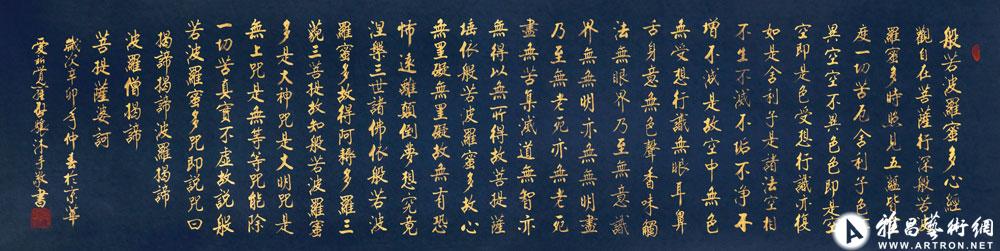 般若波羅蜜多心經
觀自在菩薩行深般若
羅蜜多時照見五蘊皆
度一切苦厄舍利子色
異空空不異色色即是空
空即是色受想行識亦復
如是舍利子是諸法空相
不生不滅不垢不淨不
增不減是故空中無色
無受想行識無眼耳鼻
舌身意無色聲香味觸
法無眼界乃至無意識
界無無明亦無無明盡
乃至無老死亦無老死
盡無苦集滅道無智亦
無得以無所得故菩提薩
埵依般若波羅蜜多故心
無罣礙無罣礙故無有恐
怖遠離顛倒夢想究竟
涅槃三世諸佛依般若波
羅蜜多故得阿耨多羅三
藐三菩提故知般若波羅蜜
多是大神咒是大明咒是
無上咒是無等等咒能除
一切苦真實不虛故說般
若波羅蜜多咒即說咒曰
揭諦揭諦波羅揭諦
波羅僧揭諦
菩提薩婆訶
歲次辛卯年仲春於京華
愛新覺羅啟驤沐手敬書
雅昌藝術網
WWW.ARTRON.NET